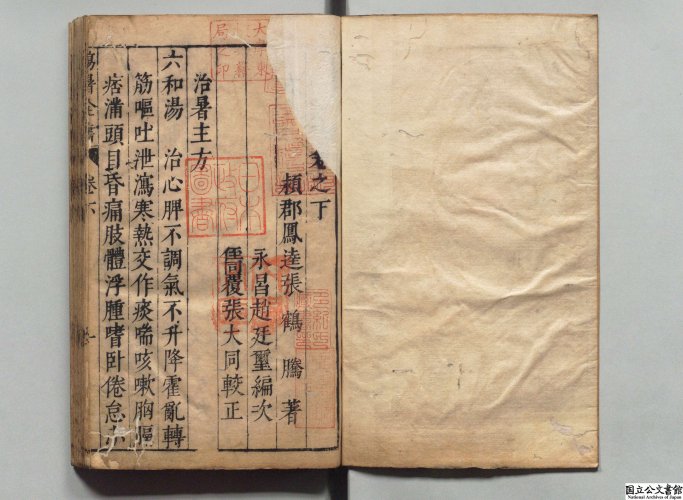 卷之下
穎郡鳳逵張鶴騰著
永昌趙廷璽編次
儒覆張大同較正
治暑主方
六和湯 治心脾不調氣不升降霍亂轉
筋嘔吐泄瀉寒熱交作痰喘咳嗽胸膈
痞滿頭目昏痛肢體浮腫嗜卧倦怠小
傷暑全書
卷下
日本政府圖書
国立公文書館
National Archives of Japan